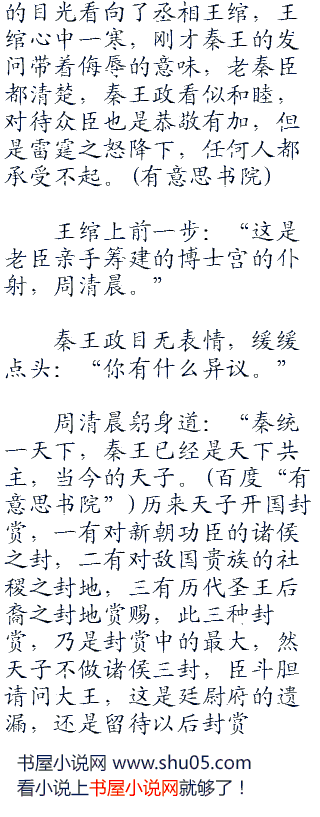 的目光看向了丞相王绾，王
绾心中一寒，刚才秦王的发
问带着侮辱的意味，老秦臣
都清楚，秦王政看似和睦，
对待众臣也是恭敬有加，但
是雷霆之怒降下，任何人都
承受不起。(有意思书院)
王绾上前一步：“这是
老臣亲手筹建的博士宫的仆
射，周清晨。”
秦王政目无表情，缓缓
点头：“你有什么异议。”
周清晨躬身道：“秦统
一天下，秦王已经是天下共
主，当今的天子。(百度“有
意思书院”)历来天子开国封
赏，一有对新朝功臣的诸侯
之封，二有对敌国贵族的社
稷之封地，三有历代圣王后
裔之封地赏赐，此三种封
赏，乃是封赏中的最大，然
天子不做诸侯三封，臣斗胆
请问大王，这是廷尉府的遗
漏，还是留待以后封赏
书屋小说网 www.shu05.com
看小说上书屋小说网就够了！